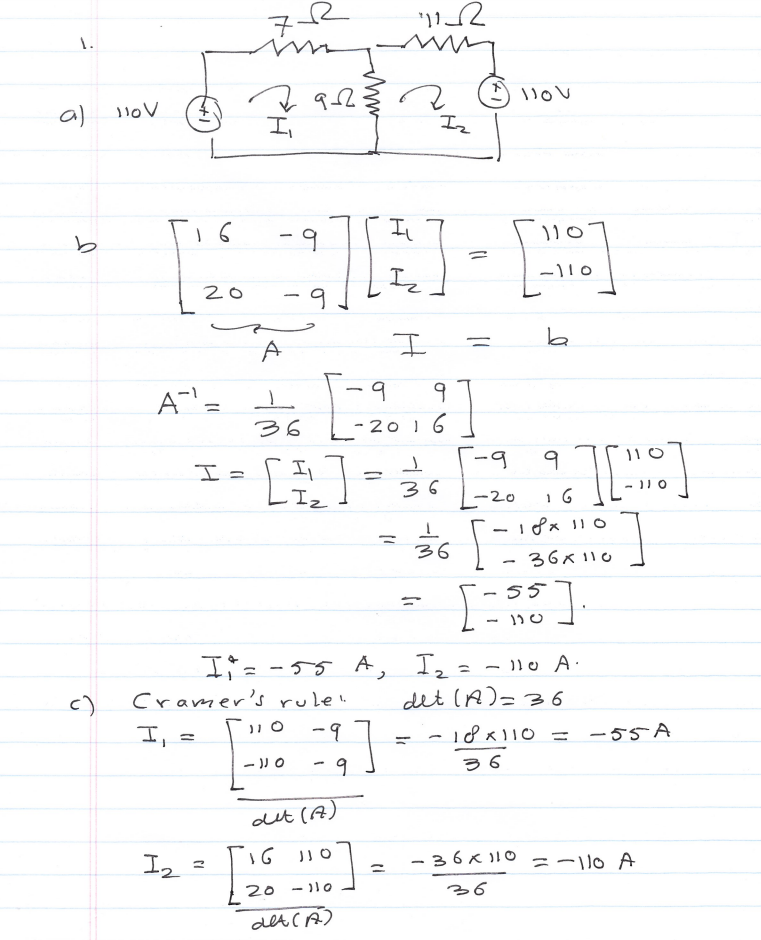 1.
7 Ω 11 Ω
a) 110V I₁ 9Ω I₂ 110V
b [16 -9; 20 -9] [I₁; I₂] = [110; -110]
A I = b
A⁻¹ = 1/36 [-9 9; -20 16]
I = [I₁; I₂] = 1/36 [-9 9; -20 16] [110; -110]
= 1/36 [-18×110; -36×110]
= [-55; -110].
I₁ = -55 A, I₂ = -110 A.
c) Cramer's rule: det(A) = 36
I₁ = [110 -9; -110 -9] / det(A) = -18×110 / 36 = -55 A
I₂ = [16 110; 20 -110] / det(A) = -36×110 / 36 = -110 A